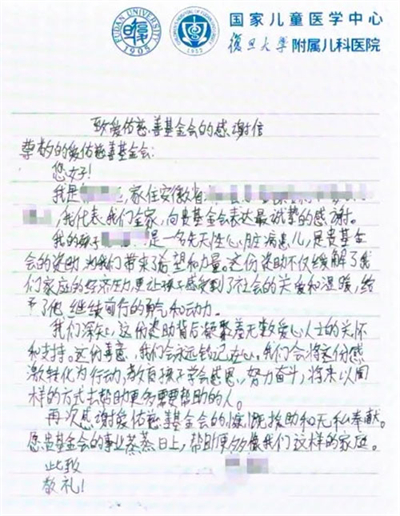 FUDAN UNIVERSITY
1905
1952
国家儿童医学中心
復旦大学附属儿科医院
致爱佑慈善基金会的感谢信
尊敬的爱佑慈善基金会:
您好!
我是 ,家住安徽省
,我代表我们全家,向贵基金会表达最诚挚的感谢。
我的 ,是一名先天性心脏病患儿,是贵基金
会的资助,为我们带来了希望和力量。这份资助不仅缓解了我
们家庭的经济压力,更让我们感受到了社会的关爱和温暖,给
予了他继续前行的勇气和动力。
我们深知,这份资助背后凝聚着无数爱心人士的关怀
和支持。这份善意,我们会永远铭记在心。我们会将这份感
激转化为行动,教育孩子学会感恩、努力奋斗,将来以同
样的方式去帮助更多需要帮助的人。
再次感谢爱佑慈善基金会的慷慨援助和无私奉献。
愿贵基金会的事业蒸蒸日上,帮助更多像我们这样的家庭。
此致
敬礼!